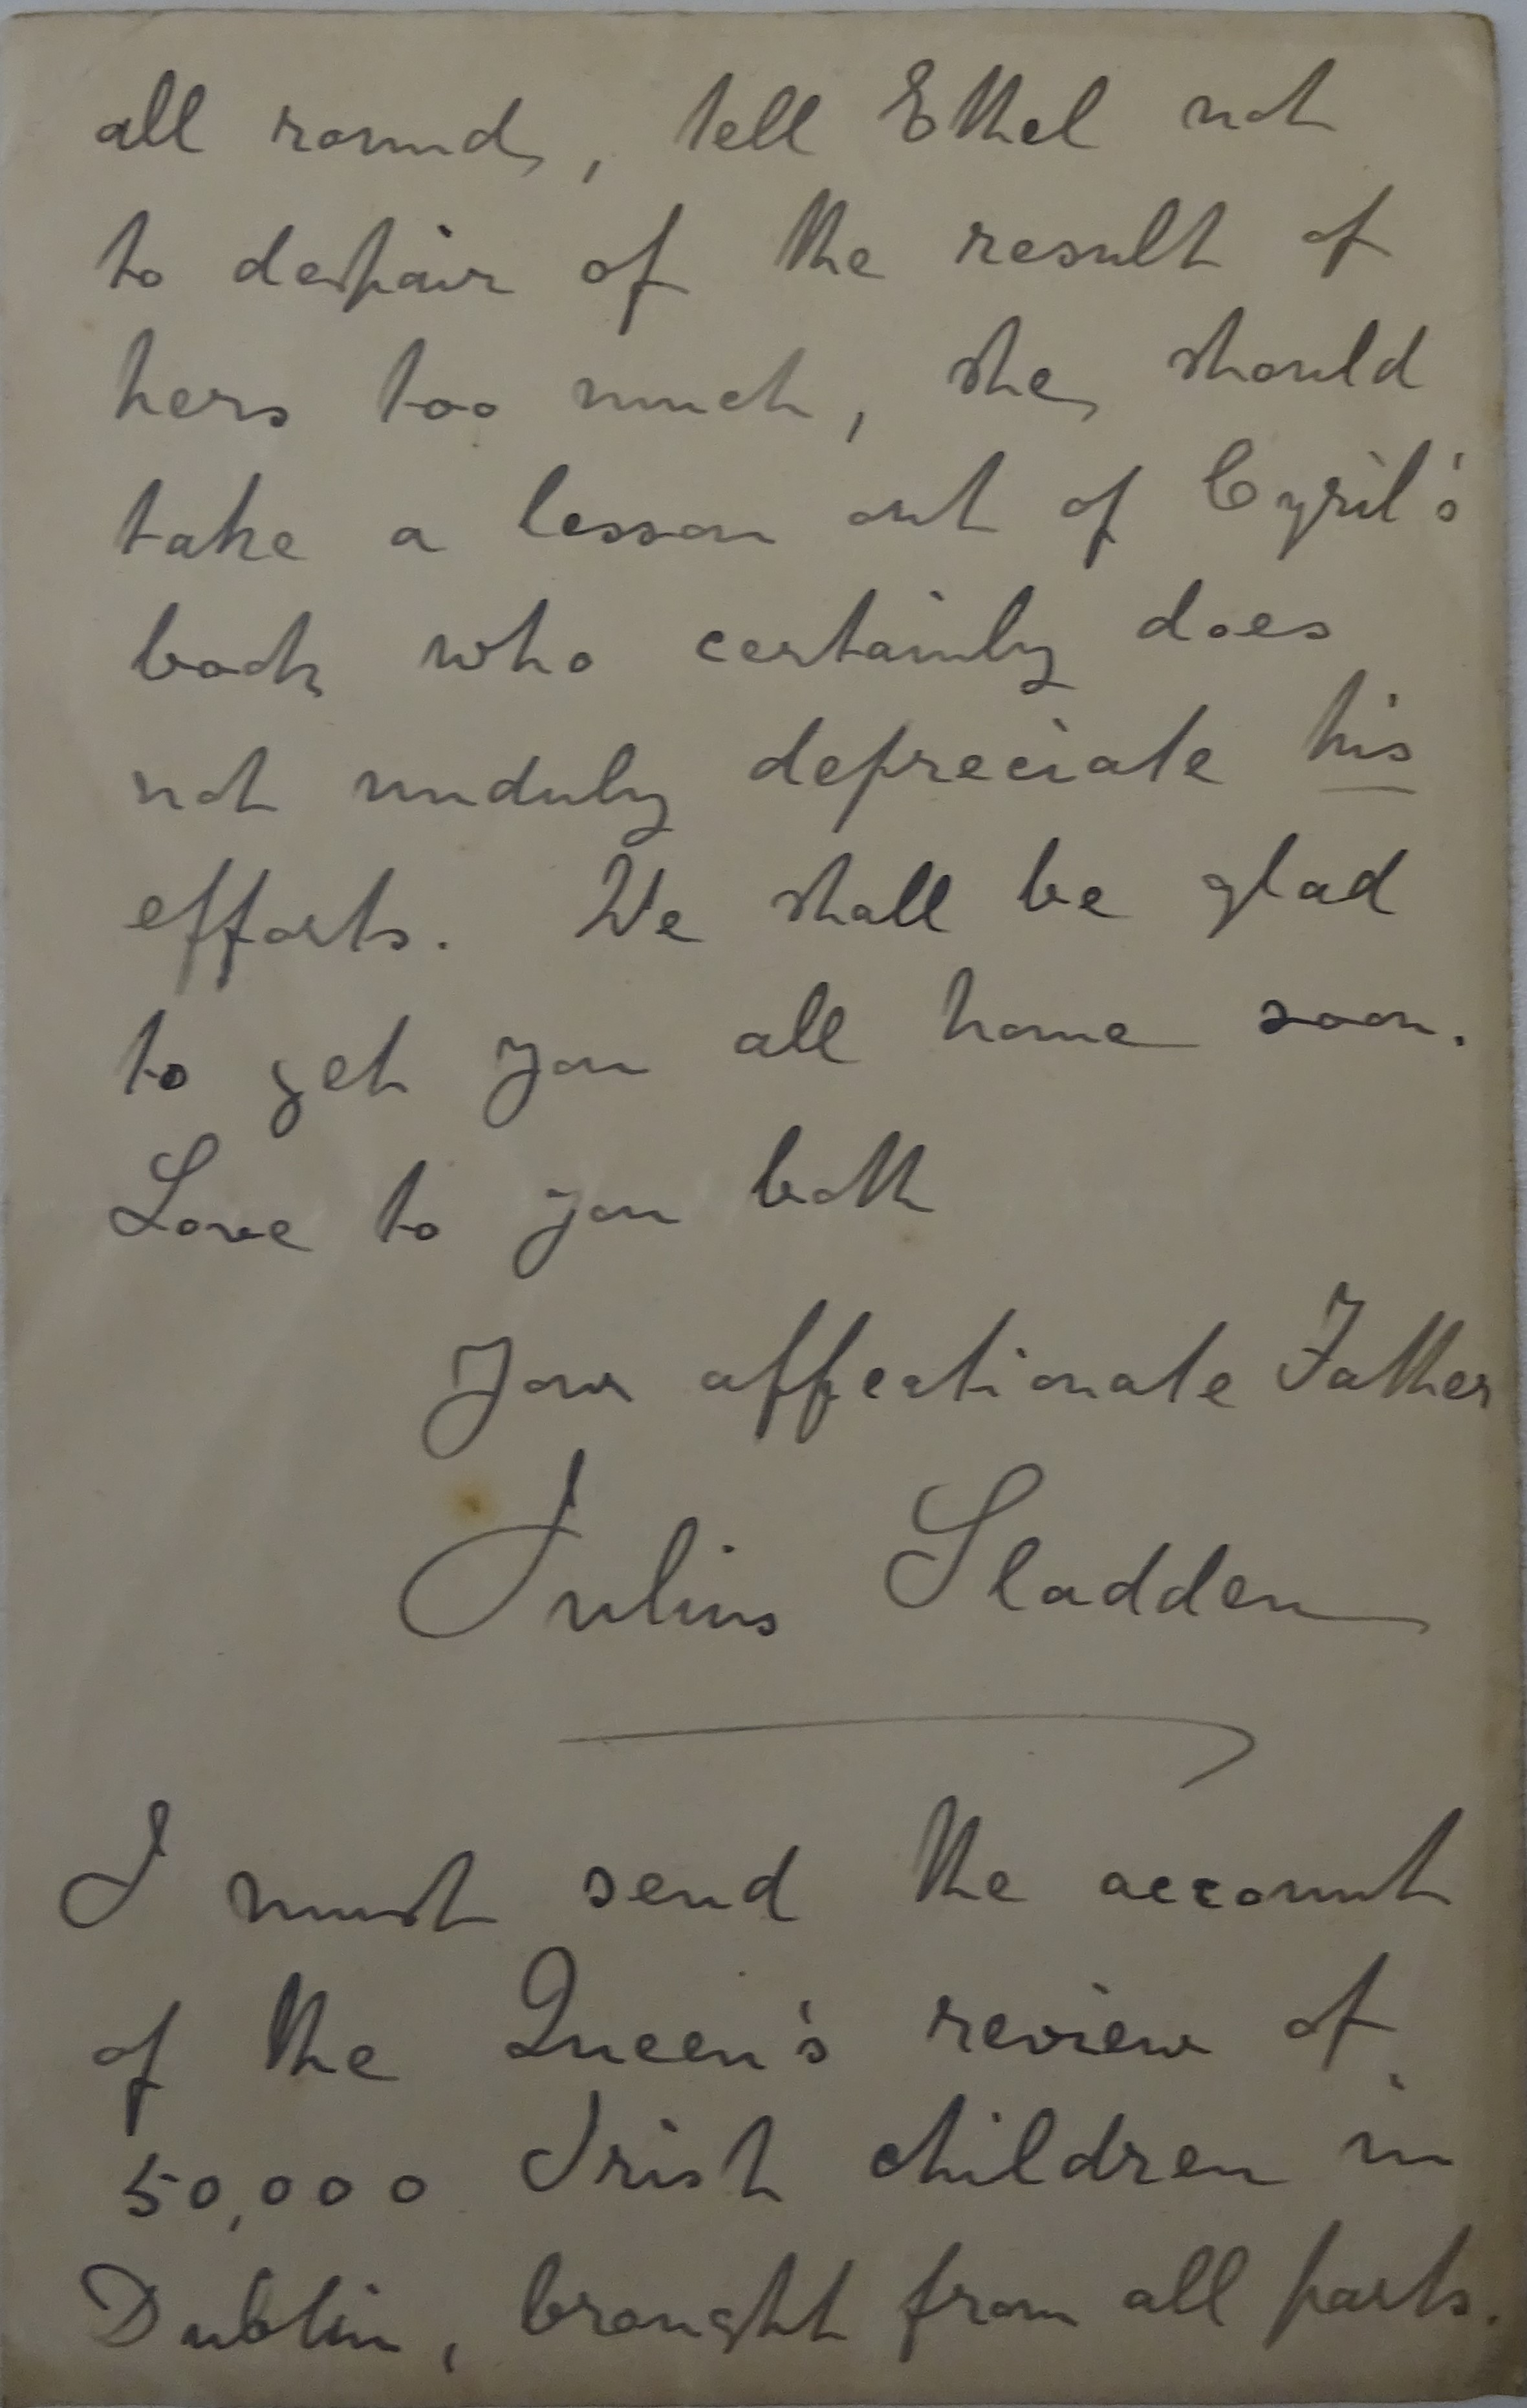 all round, tell Ethel not
to despair of the result of
hers too much, she should
take a lesson out of Cyril's
book who certainly does
not unduly depreciate his
efforts. We shall be glad
to get you all home soon.
Love to you both
Your affectionate Father
Julius Sladden
I must send the account
of the Queen's review of
50,000 Irish children in
Dublin, brought from all parts.